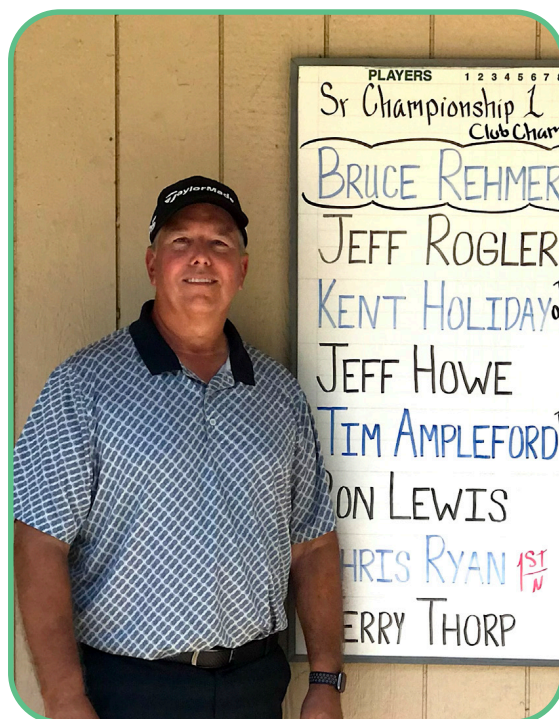 TaylorMade
PLAYERS 1 2 3 4 5 6 7
Sr Championship 1
Club Cham
BRUCE REHMER
JEFF ROGLER
KENT HOLIDAY
JEFF HOWE
TIM AMPLEFORD
ON LEWIS
HRIS RYAN 1ST
N
ERRY THORP